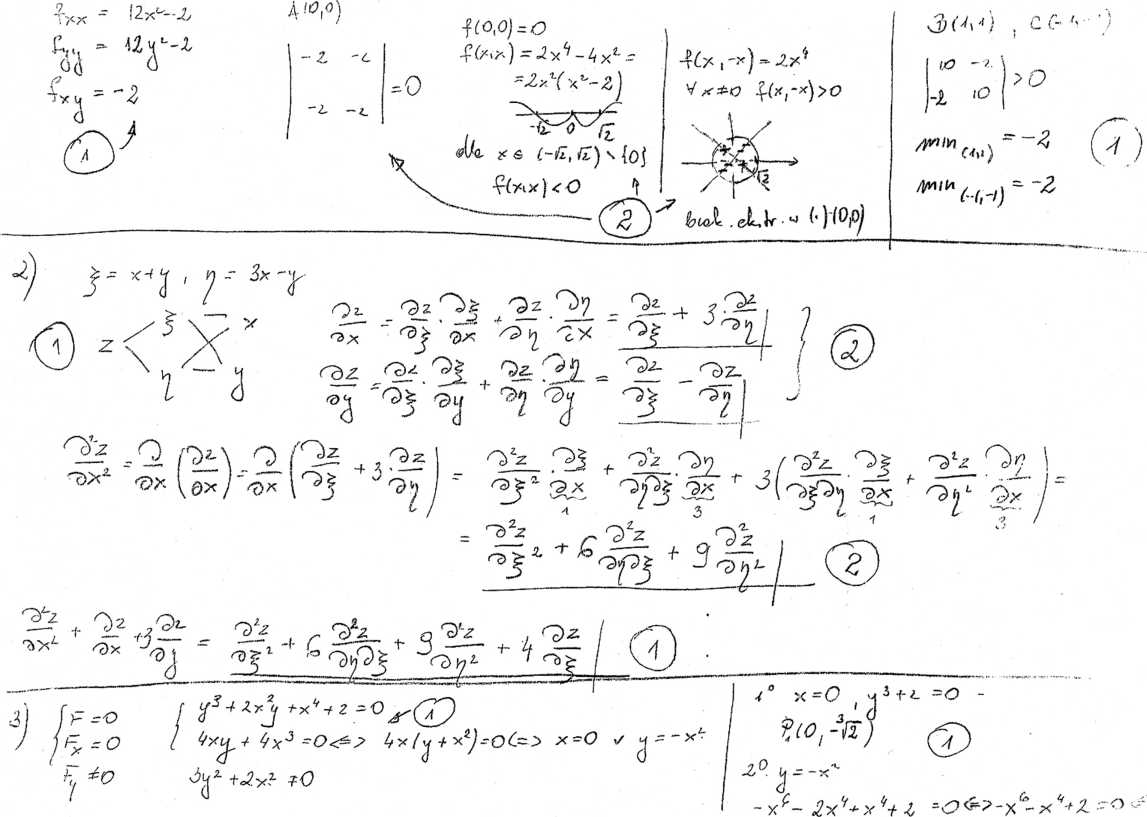 fxx = 12x²-2
fyy = 12y²-2
fxy = -2
①
A(0,0)
| -2 -2 |
| -2 -2 | = 0
f(0,0)=0
f(x,x) = 2x⁴-4x² =
= 2x²(x²-2)
-√2 0 √2
dla x ∈ (-√2, √2) \ {0}
f(x,x) < 0
②
f(x,-x) = 2x⁴
∀ x≠0 f(x,-x)>0
√2
brak . ekstr. w (·) (0,0)
B(1,1) , C(-1,-1)
| 10 -2 |
| -2 10 | > 0
min(1,1) = -2
min(-1,-1) = -2
①
2) ξ = x+y , η = 3x-y
① z ξ x
η y
∂z/∂x = ∂z/∂ξ · ∂ξ/∂x + ∂z/∂η · ∂η/∂x = ∂z/∂ξ + 3·∂z/∂η
∂z/∂y = ∂z/∂ξ · ∂ξ/∂y + ∂z/∂η · ∂η/∂y = ∂z/∂ξ - ∂z/∂η
②
∂²z/∂x² = ∂/∂x (∂z/∂x) = ∂/∂x (∂z/∂ξ + 3·∂z/∂η) = ∂²z/∂ξ² · ∂ξ/∂x + ∂²z/∂η∂ξ · ∂η/∂x + 3(∂²z/∂ξ∂η · ∂ξ/∂x + ∂²z/∂η² · ∂η/∂x) =
1 3 1 3
= ∂²z/∂ξ² + 6 ∂²z/∂η∂ξ + 9 ∂²z/∂η² ②
∂²z/∂x² + ∂z/∂x + 3 ∂z/∂y = ∂²z/∂ξ² + 6 ∂²z/∂η∂ξ + 9 ∂²z/∂η² + 4 ∂z/∂ξ ①
3) { F = 0 { y³+2x²y+x⁴+2=0 ①
Fx = 0 4xy+4x³=0 <=> 4x(y+x²)=0 <=> x=0 ∨ y=-x²
Fy ≠ 0 3y²+2x² ≠ 0
1° x=0 , y³+2 = 0
P₁(0, -³√2) ①
2° y=-x²
-x⁶-2x⁴+x⁴+2 = 0 <=> -x⁶-x⁴+2 = 0